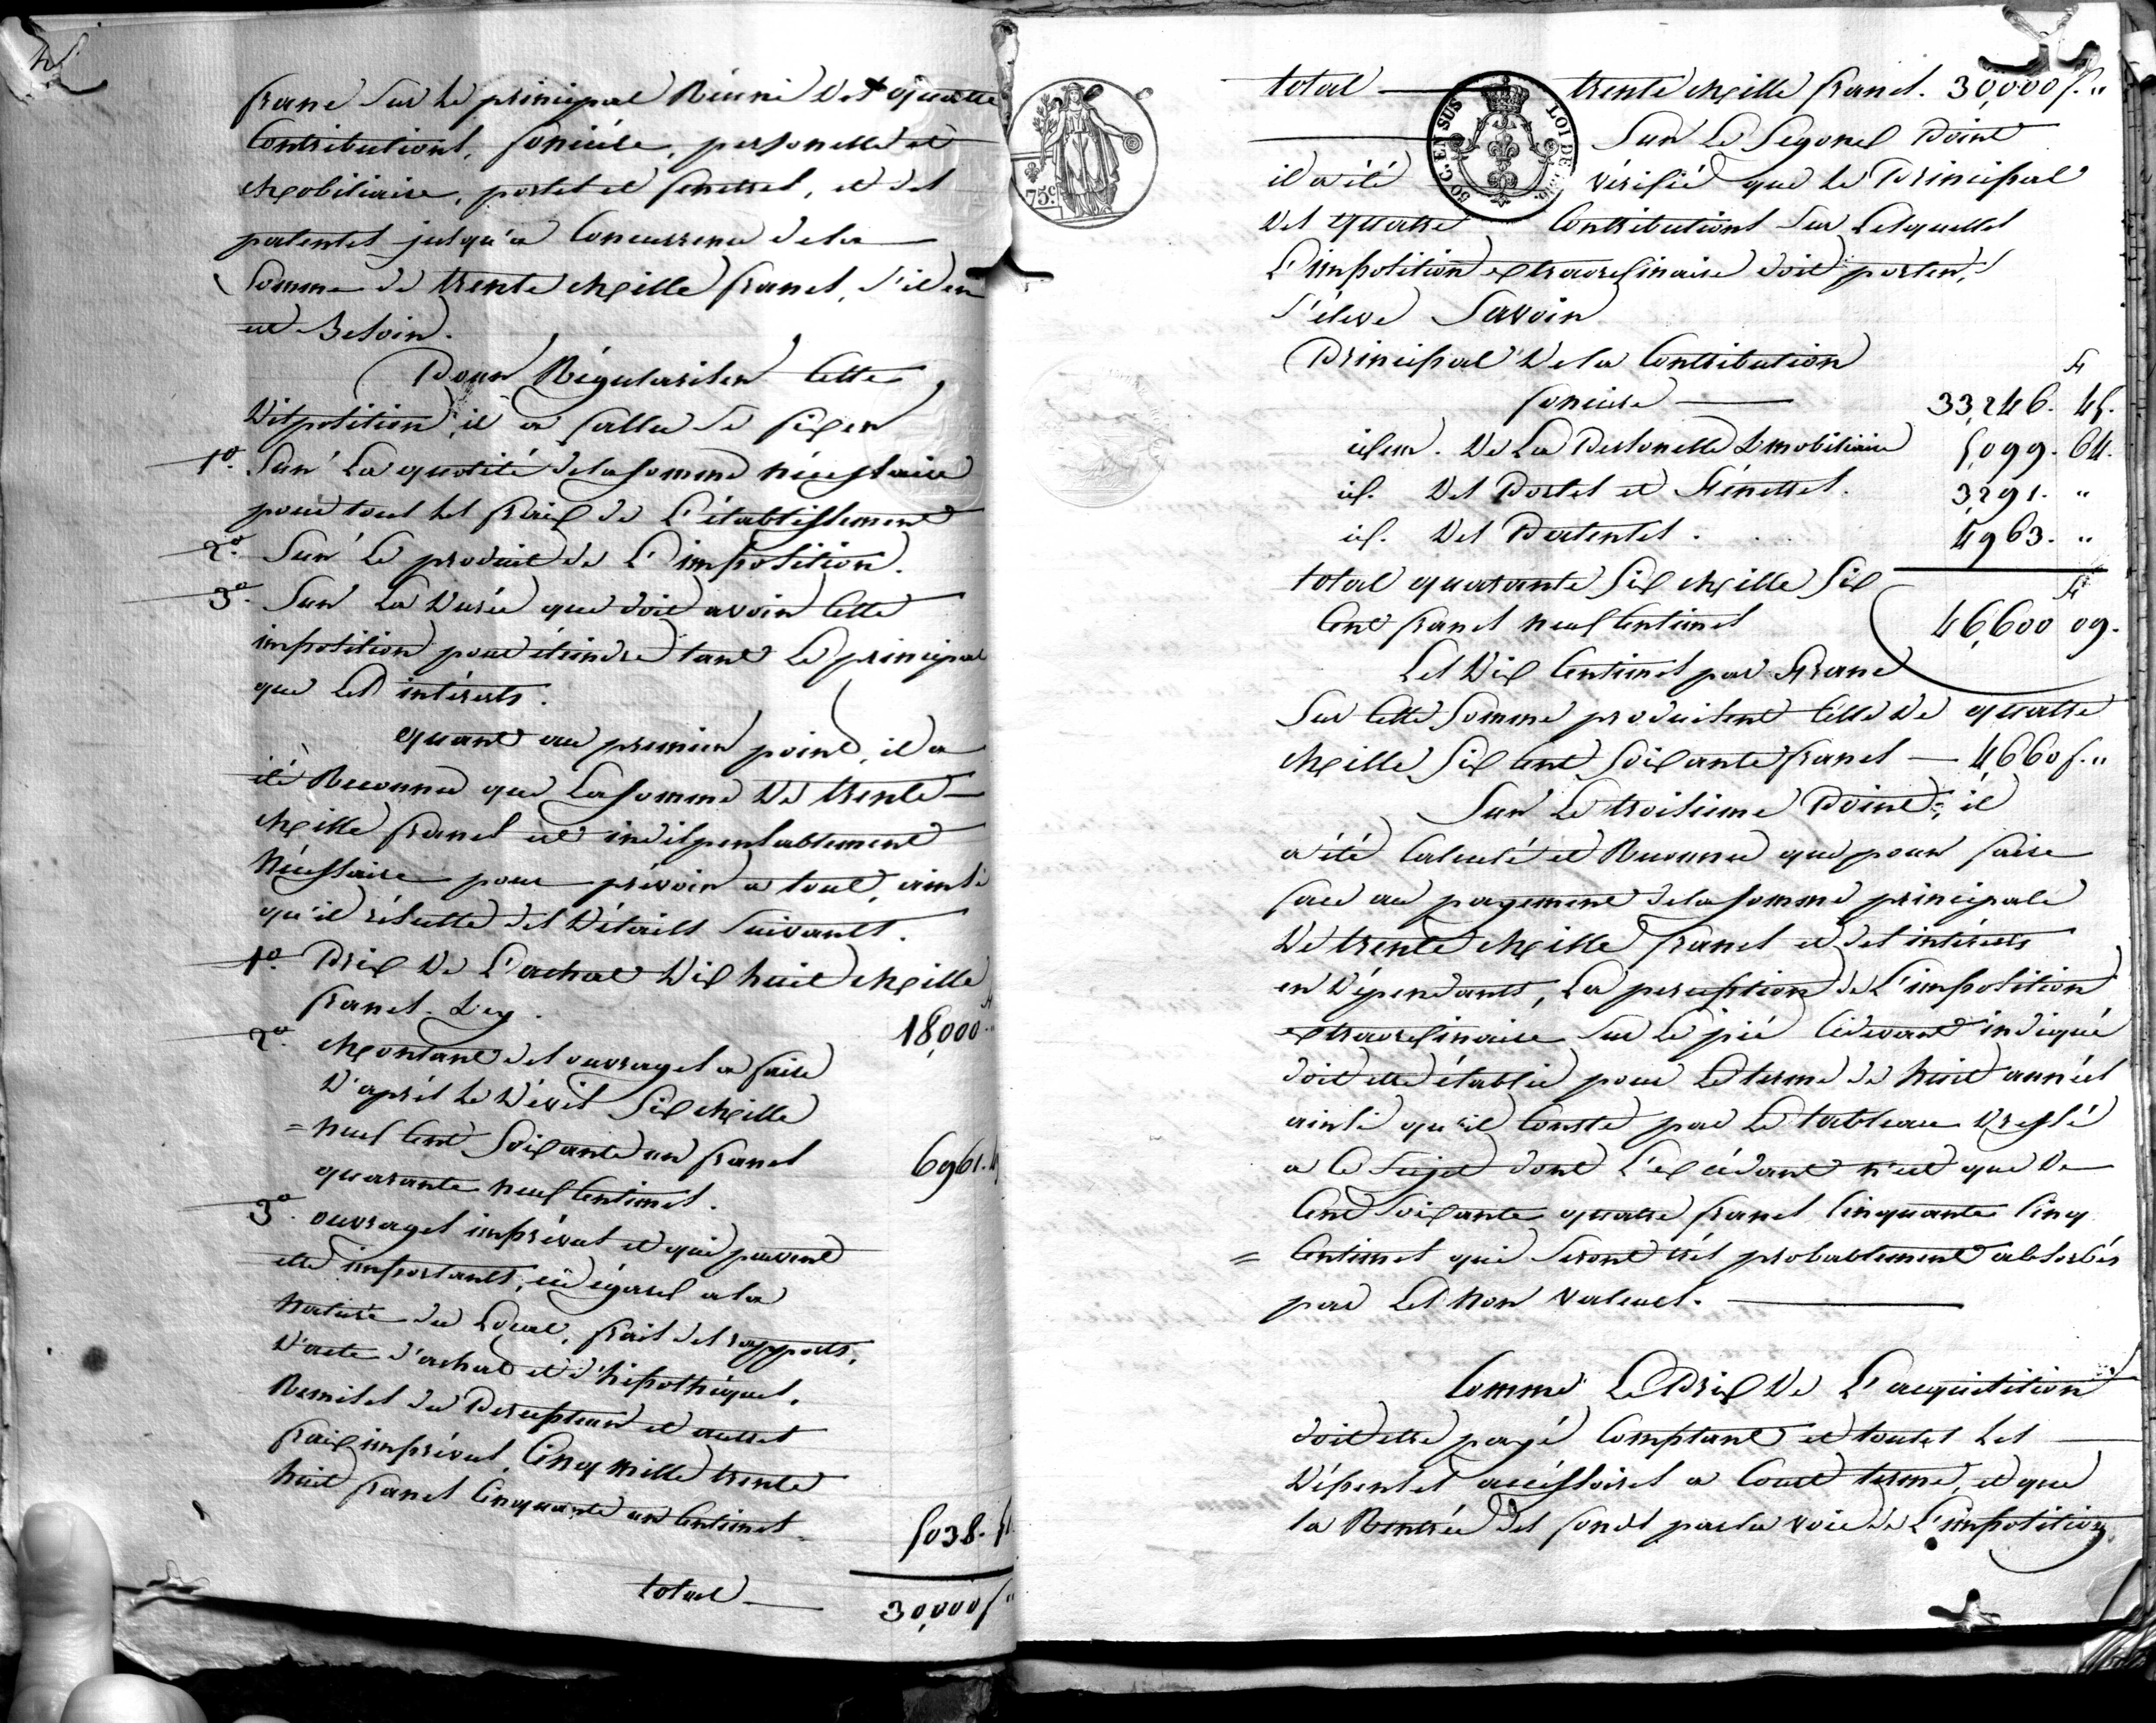 franc Sur le principal Réuni des quatre
Contributions, foncière, personelle et
Mobiliaire, portes et fenettres, et des
patentes jusqu'a Concurrence de la
Somme de trente Mille francs, S'il en
est Besoin.
Pour Régulariser Cette
Disposition, il a fallu Se fixer
1º. Sur La quotité de la somme nécessaire
pour tous les fraix de L'établissement
2º. Sur Le produit de L'imposition.
3º. Sur La Durée que doit avoir Cette
imposition pour éteindre tant Le principal
que Les intérests.
quant au premier point, il a
été Reconnu que La somme De trente
Mille francs est indispensablement
Nécessaire pour prévoir a tout, ainsi
qu'il résulte des Détails Suivants.
1º. Prix De L'achat Dix huit Mille
francs. Cy. 18,000."
2º. Montant des ouvrages a faire
D'après le Dévis Six Mille
= neuf Cent Soixante un francs
quarante neuf Centimes. 6961.49
3º. ouvrages imprévus et qui peuvent
etre importants, eû égard a la
Nature du Local, frais des rapports,
D'acte d'achat et d'hipothèques,
Remises du Percepteur et autres
fraix imprévus, Cinq mille trente
huit francs Cinquante un Centimes. 5038. 51
total 30,000 f "
total trente Mille francs. 30,000 f. "
75 c.
50 C. EN SUS
LOI DE
Sur Le Segond Point
il a été vérifié que le Principal
des quatre Contributions Sur Lesquelles
L'imposition extraordinaire doit porter,
S'éleve Savoir
Principal De la Contribution
fonciere 33,246. 45.
idem. De La Personelle & mobiliaire 5,099. 64.
id. Des Portes et Fénettres. 3,291. "
id. Des Patentes. 4,963. "
total quarante Six Mille Six
Cent francs neuf Centimes 46,600 09.
Les Dix Centimes par Franc
Sur Cette Somme produisent Celle De quatre
Mille Six Cent Soixante francs 4,660 f. "
Sur Le troisième Point, il
a été Calculé et Reconnu que pour faire
face au payement de la somme principale
De trente Mille francs et des intérests
en Dépendants, La perception de L'imposition
extraordinaire Sur Le pié Cidevant indiqué
doit etre établie pour Le terme de huit années
ainsi qu'il Conste par Le tableau Dressé
a Ce Sujet dont L'excédant n'est que De
Cent Soixante quatre francs Cinquante Cinq
= Centimes qui Seront très probablement absorbés
par Les Non Valeurs.
Comme Le Prix De L'acquisition
doit etre payé Comptant et toutes les
Dépenses accéssoires a Court terme, et que
la Rentrée des fonds par la voie de L'imposition